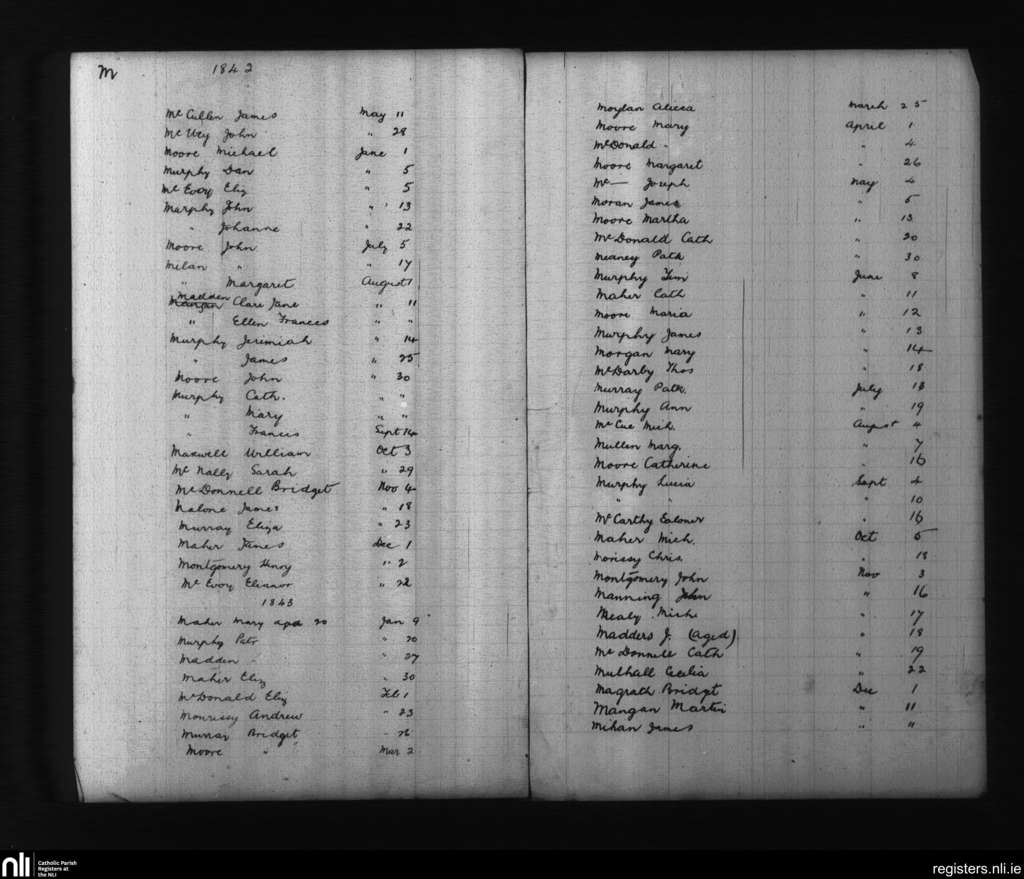 M 1842
McCullen James May 11
McVey John " 28
Moore Michael June 1
Murphy Dan " 5
McEvoy Eliz " 5
Murphy John " 13
" Johanne " 22
Moore John July 5
Milan " " 17
" Margaret August 1
Madden
Mangan Clare Jane " 11
" Ellen Frances " "
Murphy Jerimiah " 14
" James " 25
Moore John " 30
Murphy Cath. " "
" Mary " "
" Francis Sept 14
Maxwell William Oct 3
McNally Sarah " 29
McDonnell Bridget Nov 4
Malone James " 18
Murray Eliza " 23
Maher James Dec 1
Montgomery Henry " 2
McEvoy Eleanor " 22
1843
Maher Mary aged 20 Jan 9
Murphy Patk " 20
Madden " " 27
Maher Eliz " 30
McDonald Eliz Feb 1
Morrissy Andrew " 23
Murray Bridget " 26
Moore " Mar 2
Moylan Alicea March 25
Moore Mary April 1
McDonald " " 4
Moore Margaret " 26
Mc— Joseph May 4
Moran James " 5
Moore Martha " 13
McDonald Cath " 20
Meaney Patk " 30
Murphy Tim June 8
Maher Cath " 11
Moore Maria " 12
Murphy James " 13
Morgan Mary " 14
McDarby Thos " 18
Murray Patk. July 18
Murphy Ann " 19
McCue Mich. August 4
Mullen Marg. " 7
Moore Catherine " 16
Murphy Lucia Sept 4
" " " 10
McCarthy " 16
Maher Mich. Oct 5
Morissy Chris. " 18
Montgomery John Nov 3
Manning John " 16
Mealy Mich " 17
Madders J. (aged) " 18
McDonnell Cath " 19
Mulhall Cecilia " 22
Magrath Bridget Dec 1
Mangan Martin " 11
Mihan James " "
nli
Catholic Parish
Registers at
the NLI
registers.nli.ie